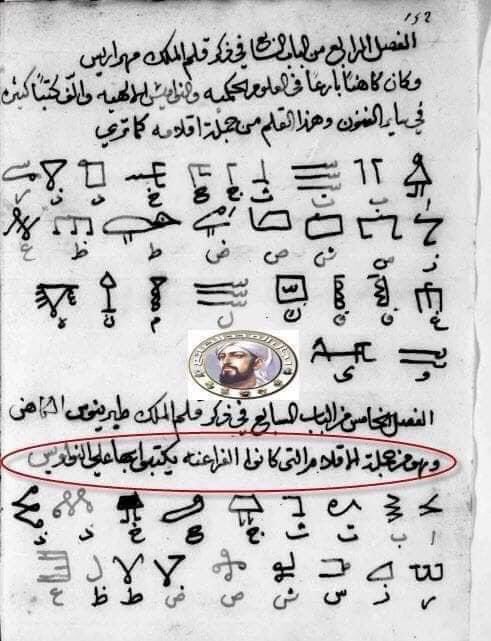 ١٥٢
الفصل الرابع من الباب السابع في ذكر قلم الملك مهراريس
وكان كاهنا بارعا في العلوم الحكميه والنواميس الالهيه والف كتبا كثيره
في ساير الفنون وهذا القلم من جملة اقلامه كما تري
ا ب ت ث ج ح خ د ذ ر
ز س ش ص ض ط ظ ع
غ ف ق ك ل م ن ه
و ي
الفصل الخامس من الباب السابع في ذكر قلم الملك الكاهن
وهو من جملة الاقلام التي كانوا الفراعنه يكتبون بها علي النواويس
ا ب ت ث ج ح خ د ذ
ر ز س ش ص ض ط ظ ع